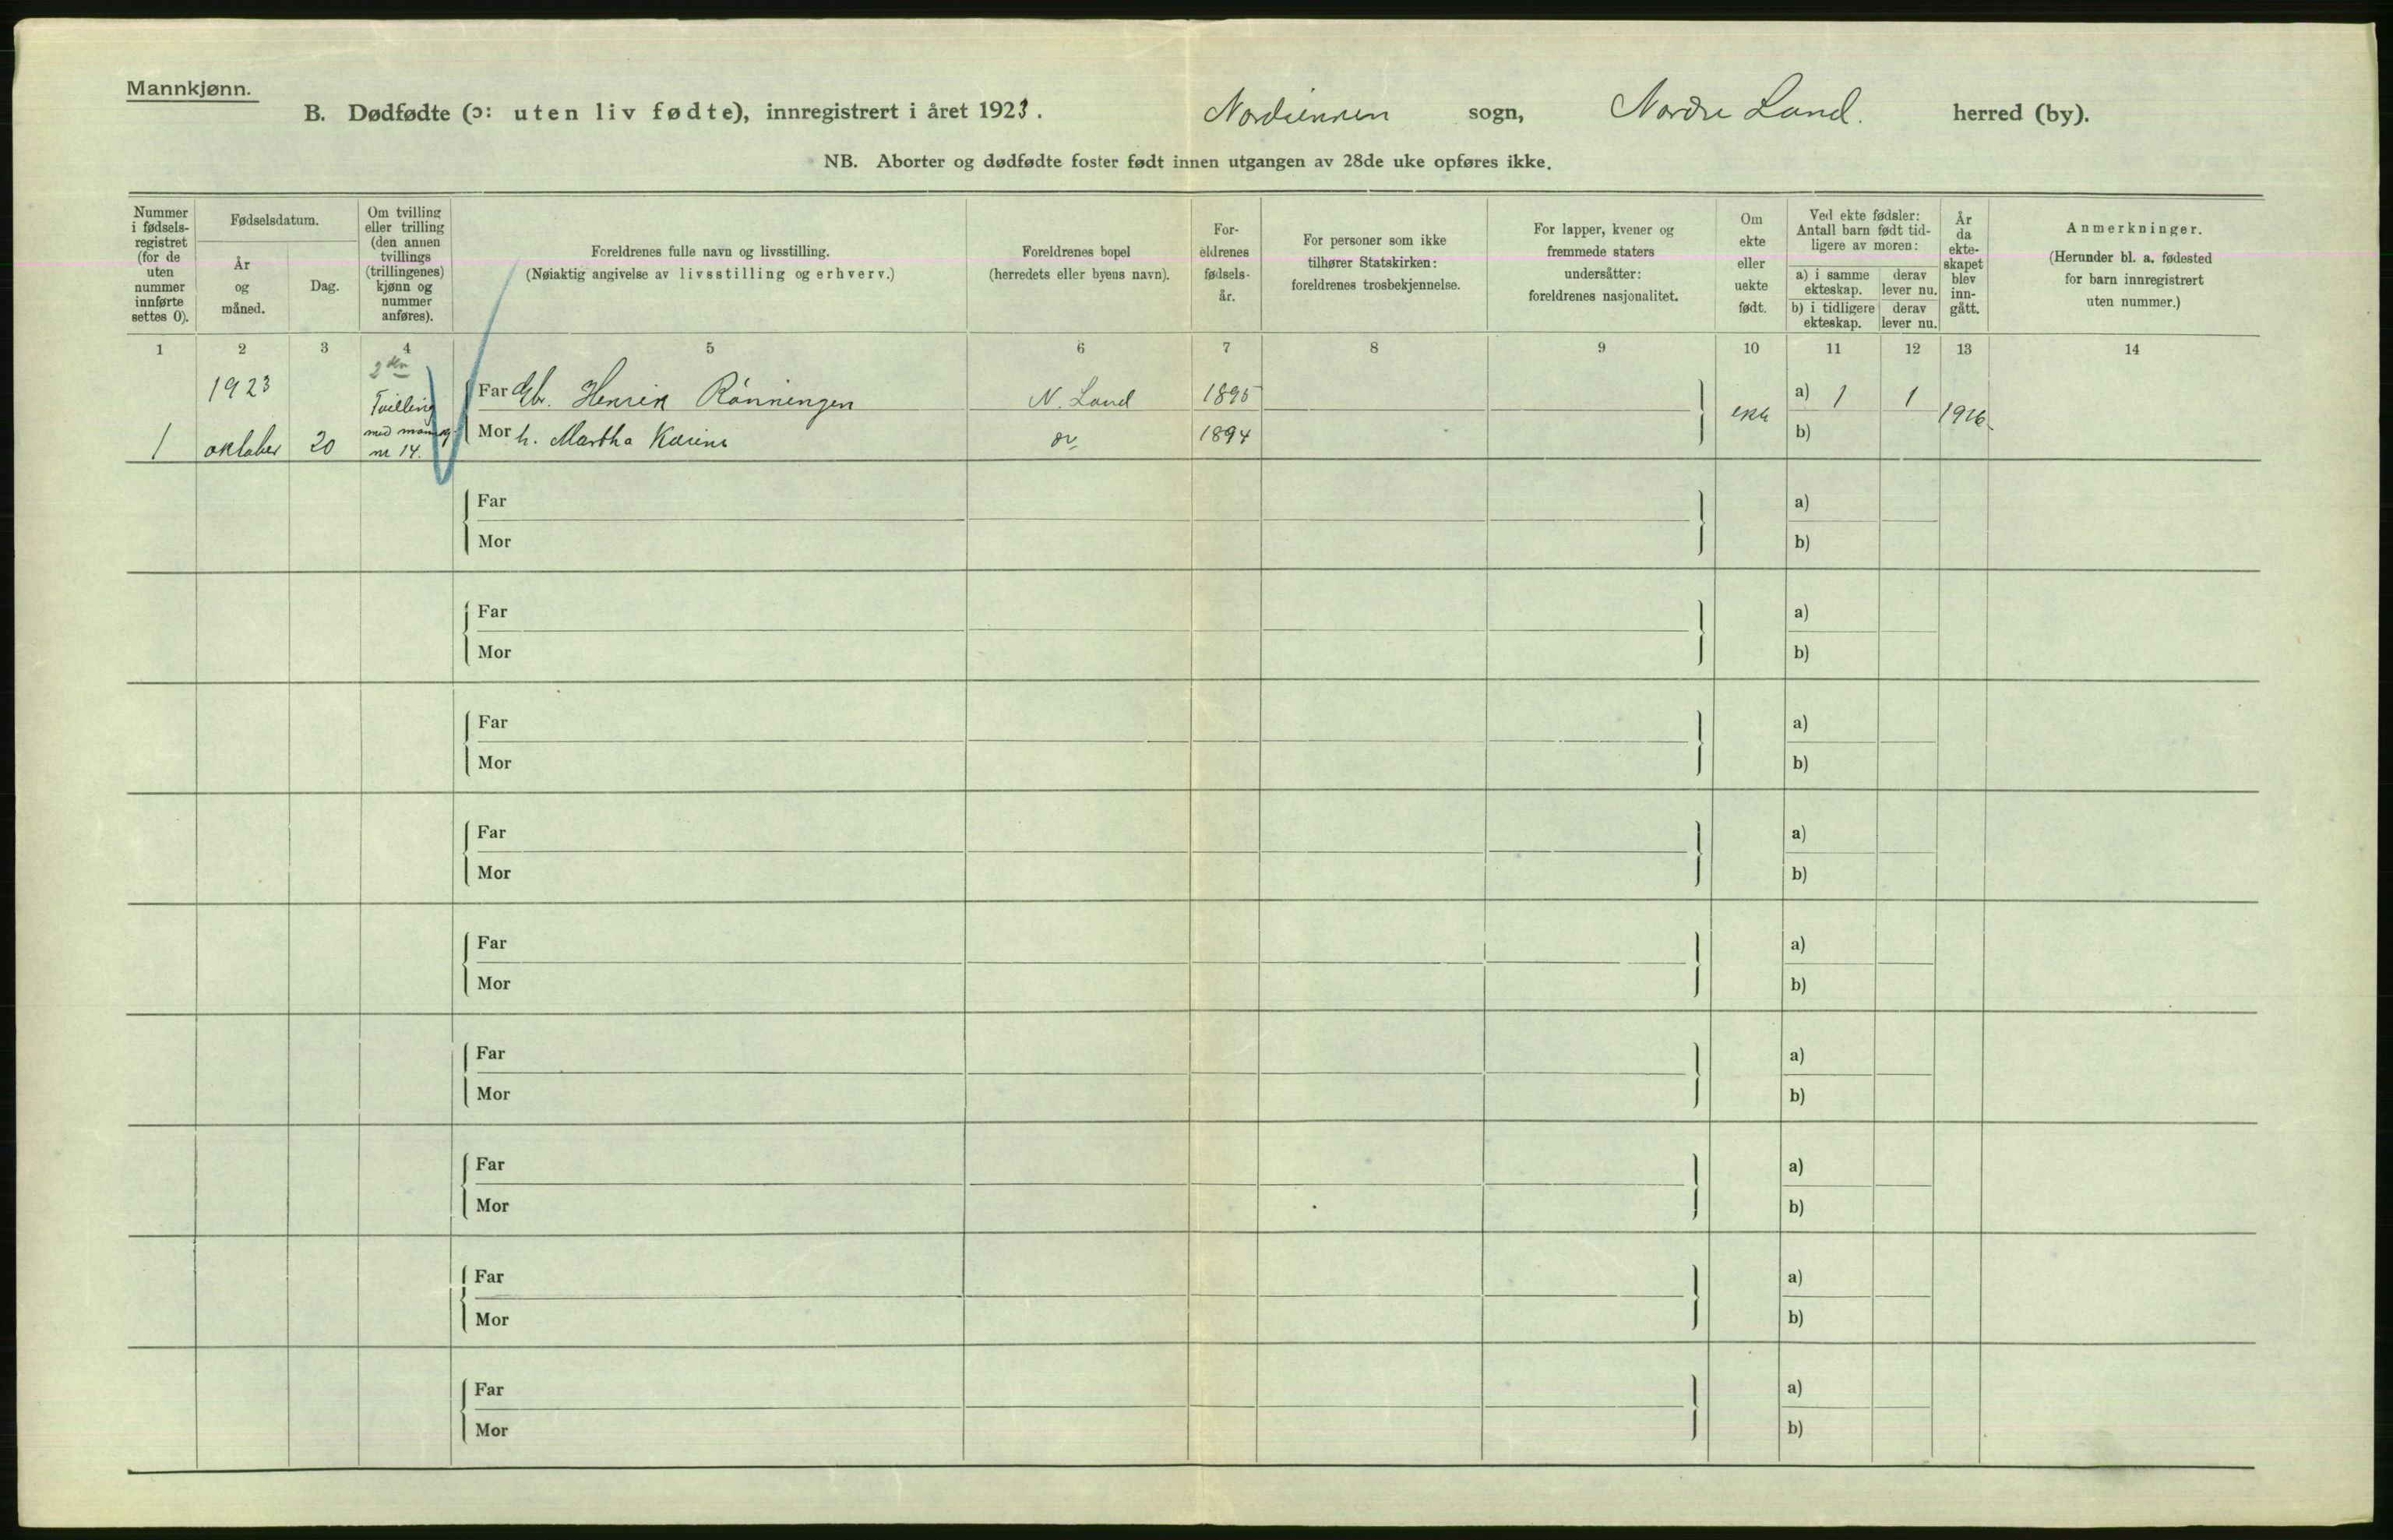 Mannkjønn.
B. Dødfødte (ɔ: uten liv fødte), innregistrert i året 1923. Nordsinnen sogn, Nordre Land. herred (by).
NB. Aborter og dødfødte foster født innen utgangen av 28de uke opføres ikke.
Nummer i fødsels-registret (for de uten nummer innførte settes 0).
Fødselsdatum.
År og måned.
Dag.
Om tvilling eller trilling (den annen tvillings (trillingenes) kjønn og nummer anføres).
Foreldrenes fulle navn og livsstilling.
(Nøiaktig angivelse av livsstilling og erhverv.)
Foreldrenes bopel
(herredets eller byens navn).
For-eldrenes fødsels-år.
For personer som ikke tilhører Statskirken: foreldrenes trosbekjennelse.
For lapper, kvener og fremmede staters undersåtter: foreldrenes nasjonalitet.
Om ekte eller uekte født.
Ved ekte fødsler: Antall barn født tid-ligere av moren:
a) i samme ekteskap.
derav lever nu.
b) i tidligere ekteskap.
derav lever nu.
År da ekte-skapet blev inn-gått.
Anmerkninger.
(Herunder bl. a. fødested for barn innregistrert uten nummer.)
1 2 3 4 5 6 7 8 9 10 11 12 13 14
1923 Tvilling Far Gbr. Henrik Rønningen N. Land 1895 a) 1 1
1 oktober 20 med nr 14. Mor h. Martha Karine 1894 ekte b) 1916
Far a)
Mor b)
Far a)
Mor b)
Far a)
Mor b)
Far a)
Mor b)
Far a)
Mor b)
Far a)
Mor b)
Far a)
Mor b)
Far a)
Mor b)
Far a)
Mor b)